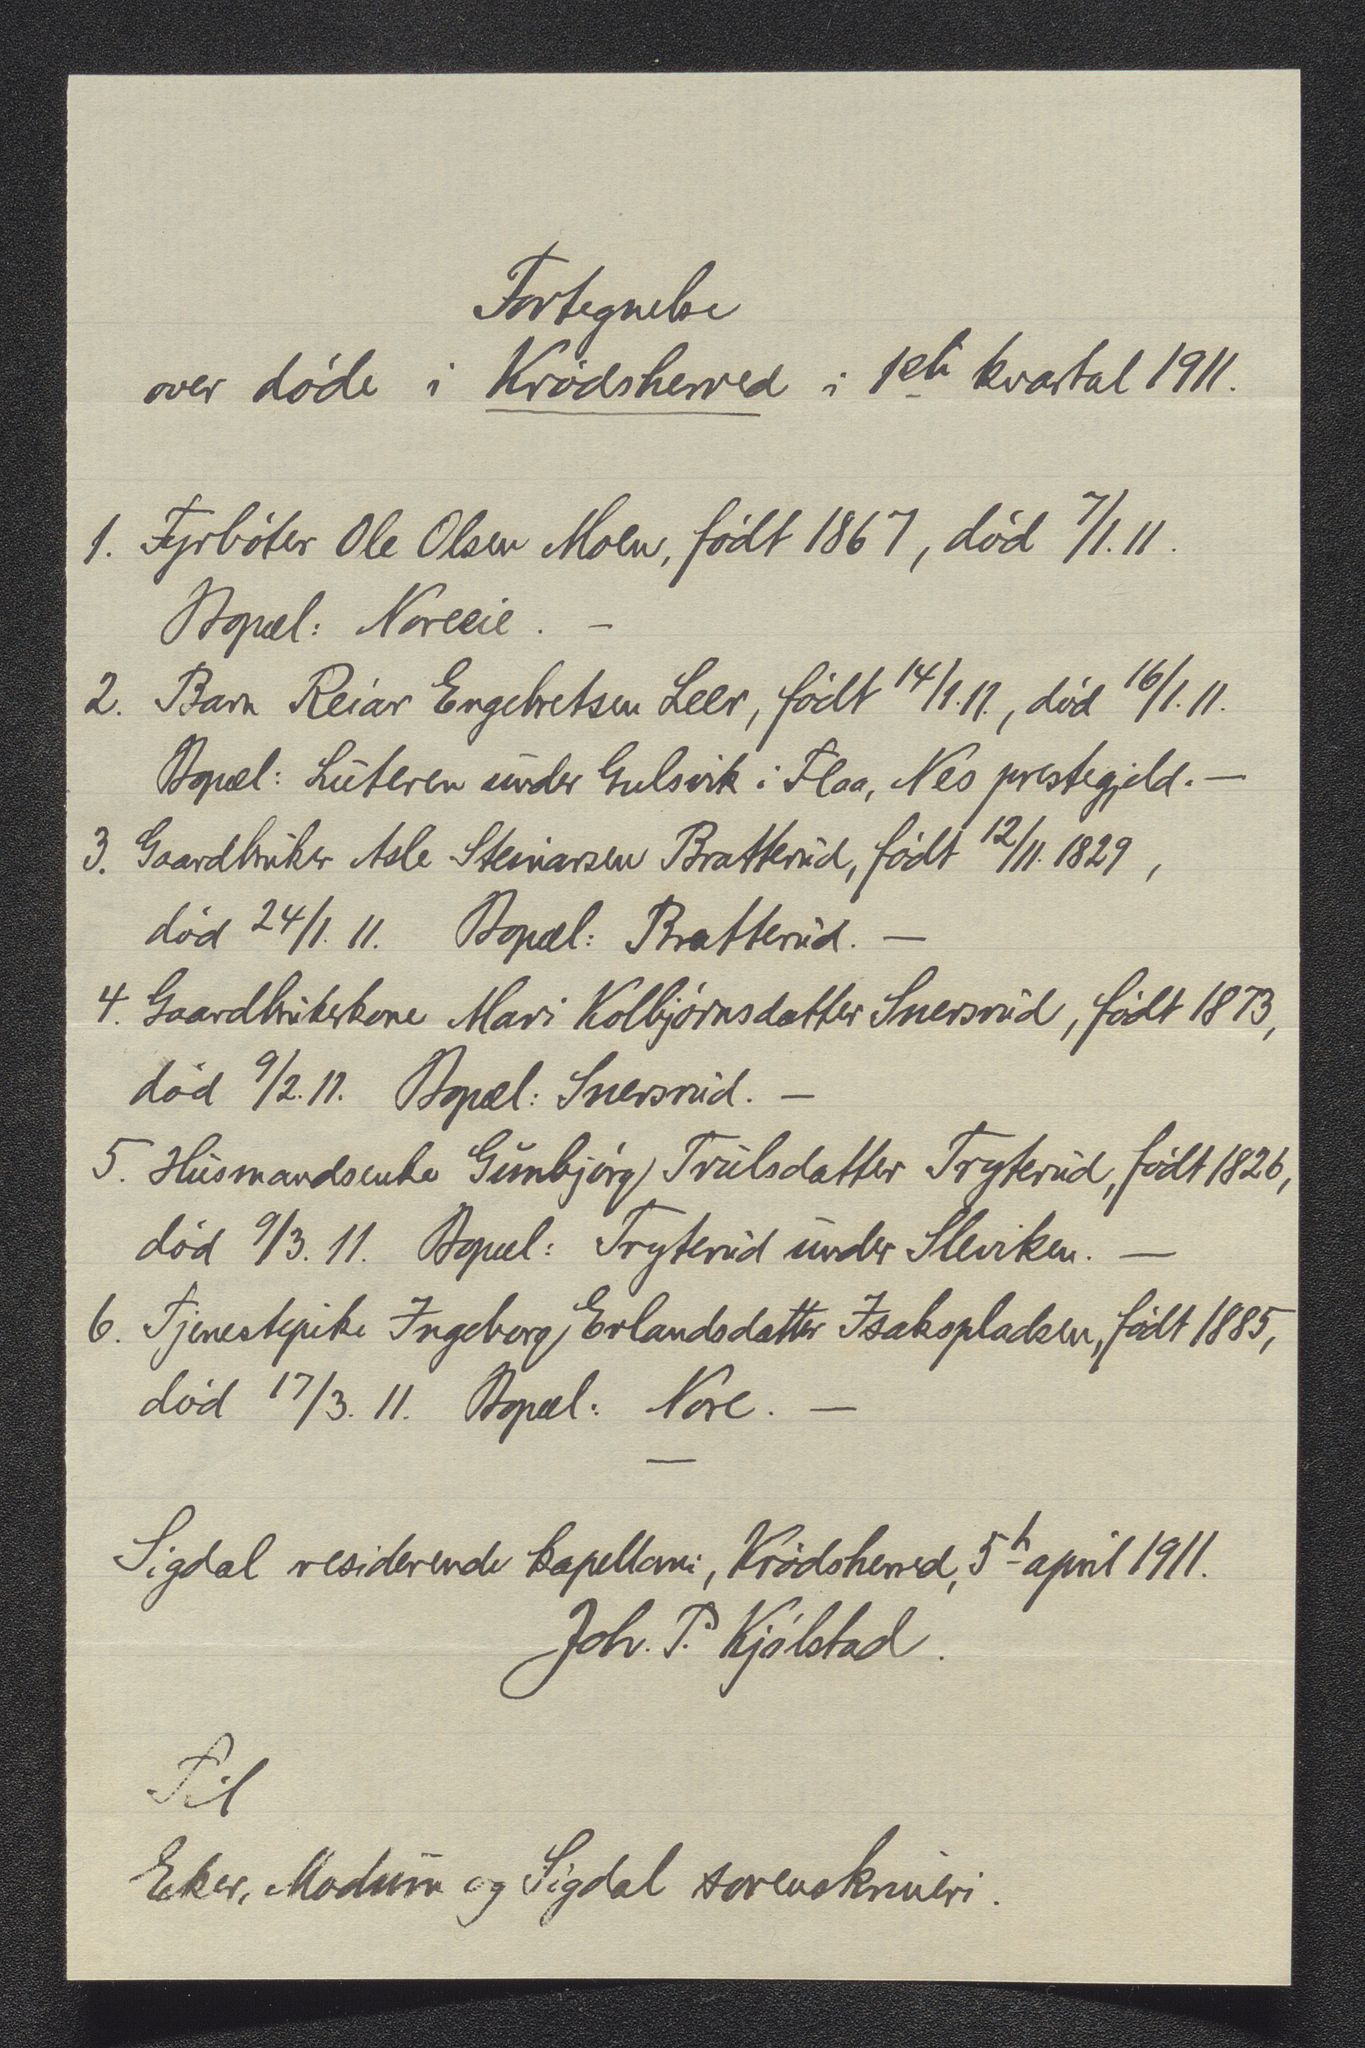 Fortegnelse
over døde i Krødsherred i 1ste kvartal 1911.
1. Fyrbøter Ole Olsen Moen, født 1867, død 7/1. 11.
Bopæl: Noreeie. —
2. Barn Reiar Engebretsen Leer, født 14/1. 11., død 16/1. 11.
Bopæl: Luteren under Gulsvik i Flaa, Nes prestegjeld. —
3. Gaardbruker Asle Steinarsen Bratterud, født 12/11. 1829,
død 24/1. 11. Bopæl: Bratterud. —
4. Gaardbrukerkone Mari Kolbjørnsdatter Snersrud, født 1873,
død 9/2. 11. Bopæl: Snersrud. —
5. Husmandsenke Gunbjørg Trulsdatter Tryterud, født 1826,
død 9/3. 11. Bopæl: Tryterud under Sleviken. —
6. Tjenestepike Ingeborg Erlandsdatter Isakspladsen, født 1885,
død 17/3. 11. Bopæl: Nore. —
Sigdal residerende kapellani, Krødsherred, 5te april 1911.
Joh. P. Kjølstad.
Til
Eker, Modum og Sigdal sorenskriveri.